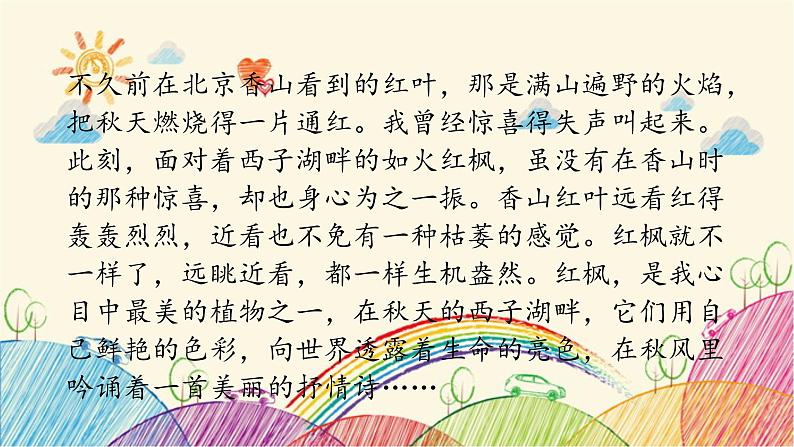 不久前在北京香山看到的红叶，那是满山遍野的火焰，
把秋天燃烧得一片通红。我曾经惊喜得失声叫起来。
此刻，面对着西子湖畔的如火红枫，虽没有在香山时
的那种惊喜，却也身心为之一振。香山红叶远看红得
轰轰烈烈，近看也不免有一种枯萎的感觉。红枫就不
一样了，远眺近看，都一样生机盎然。红枫，是我心
目中最美的植物之一，在秋天的西子湖畔，它们用自
己鲜艳的色彩，向世界透露着生命的亮色，在秋风里
吟诵着一首美丽的抒情诗……